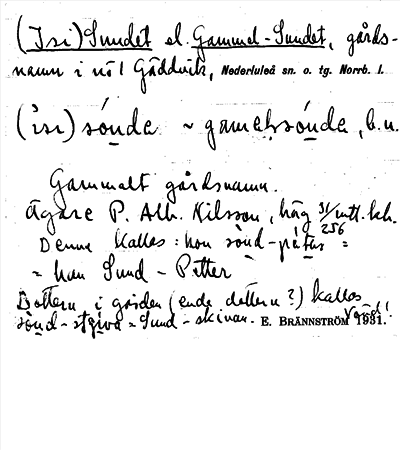 (Isi) Sundet el. Gammel-Sundet, gårds-
namn i nö1 Gäddvik, Nederluleå sn. o. tg. Norrb. l.
(ı̊si) sónda ~ gamelsónda, b.u.
Gammalt gårdsnamn.
Ägare P. Alb. Nilsson, häg 31/256 mtt.
Denne kallas: hon sònd-pétar =
= han Sund-Petter
Dottern i gården (enda dottern?) kallas
sònd-stgiva = Sund-skivan. E. BRÄNNSTRÖM 1931.